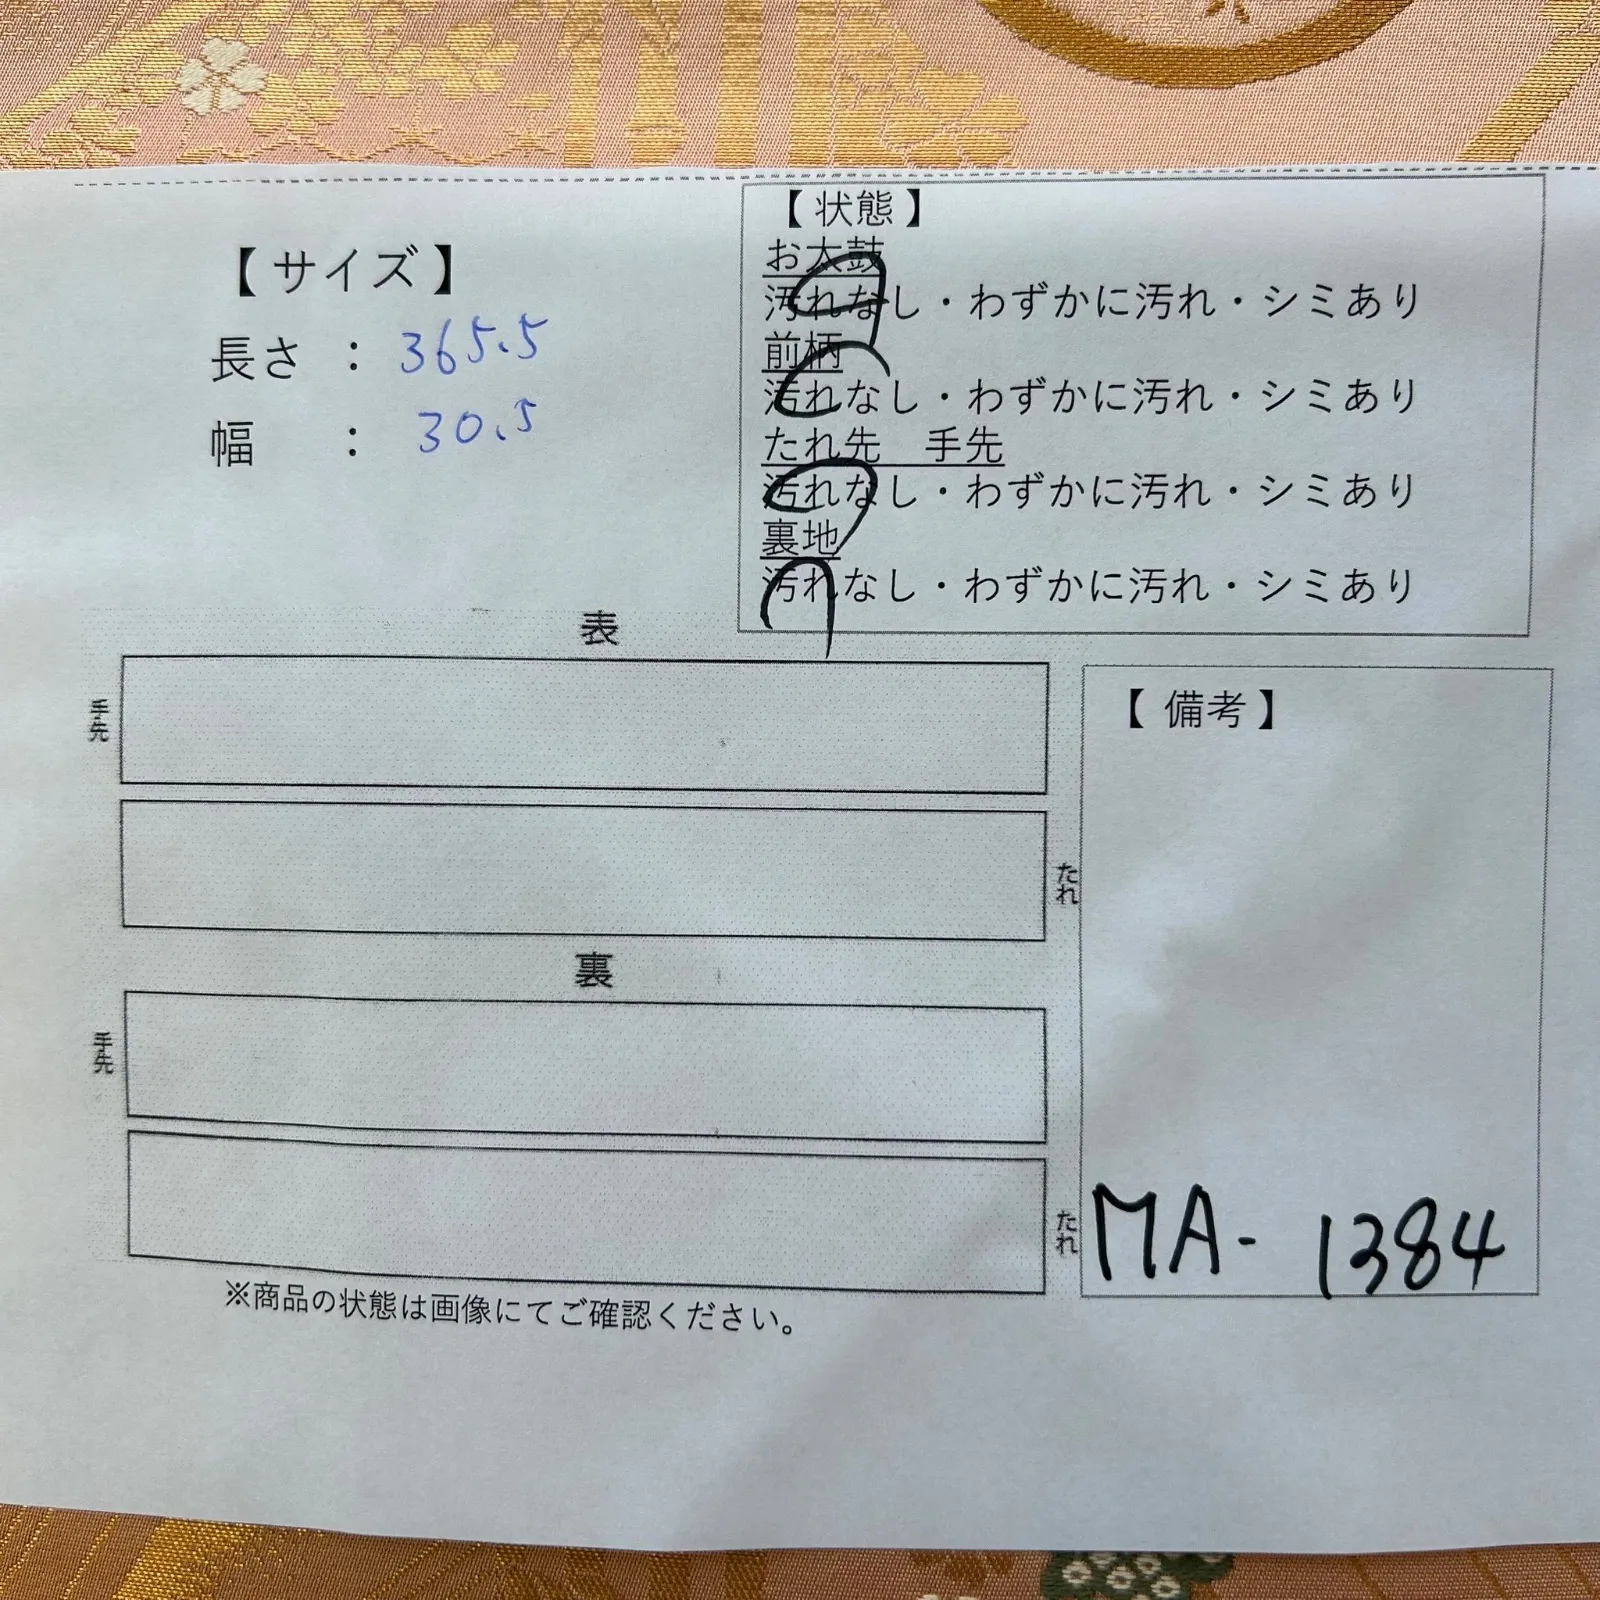 【サイズ】
長さ ： 365.5
幅 ： 30.5
【状態】
お太鼓
汚れなし・わずかに汚れ・シミあり
前柄
汚れなし・わずかに汚れ・シミあり
たれ先　手先
汚れなし・わずかに汚れ・シミあり
裏地
汚れなし・わずかに汚れ・シミあり
表
手先
たれ
裏
手先
たれ
【備考】
MA-1384
※商品の状態は画像にてご確認ください。